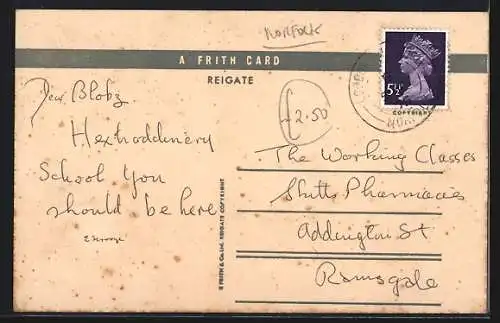 NORFOLK
A FRITH CARD
REIGATE
5½P
COPYRIGHT
£2.50
Dear Blobz
Hextraddinery
School You
should be here
The Working Classes
Shutts Pharmacies
Addington St
Ramsgate
© FRITH & Co. Ltd. REIGATE COPYRIGHT